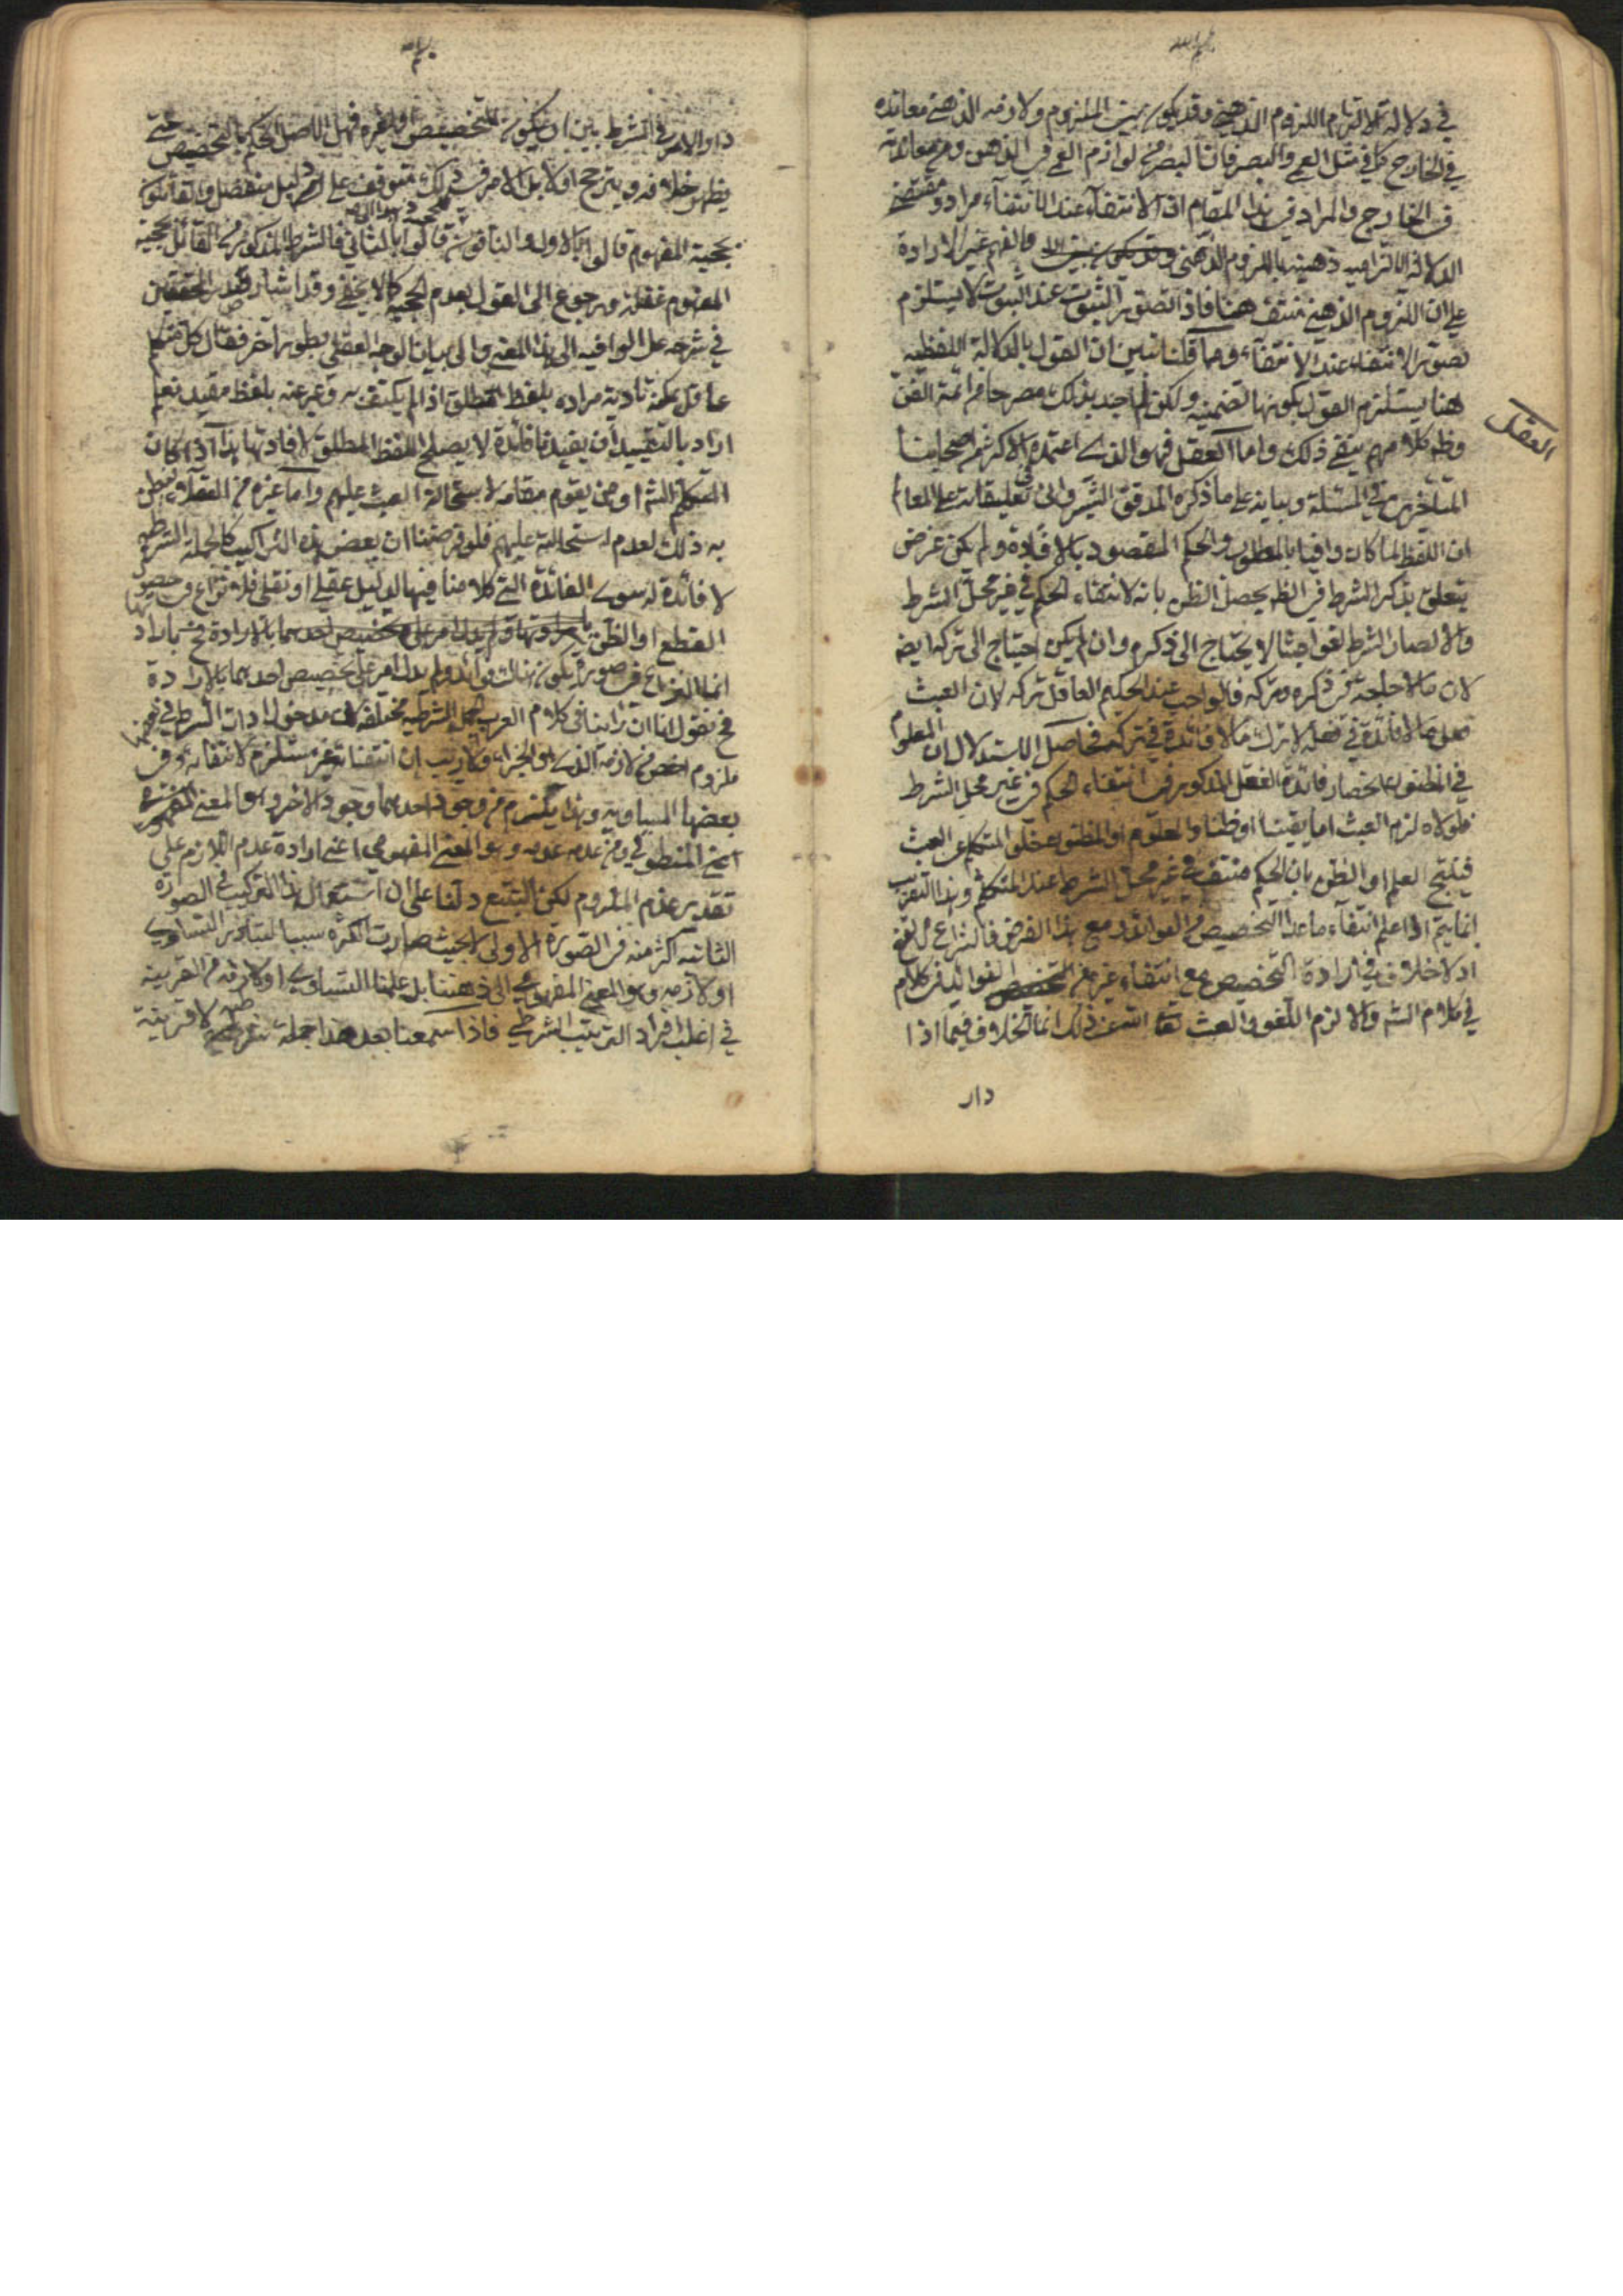 في دلالة الالتزام اللزوم الذهني وقد يكون بين الملزوم ولازمه الذهني معانده
في الخارج كما في مثل العمى والبصر فان البصر من لوازم العمى في الذهن ومع معاندته
في الخارج والمراد في هذا المقام اذ الانتفاء عند الانتفاء مراد ومقتضى
الدلالة الالتزاميه ذهنيتها باللزوم الذهني والفهم غير الارادة
على ان اللزوم الذهني منتف هنا فاذا تصور الثبوت عند الثبوت لا يستلزم
تصور الانتفاء عند الانتفاء ومما قلنا تبين ان القول بالدلالة اللفظيه
هنا يستلزم القول بكونها تضمنيه ولكن لم اجد بذلك مصرحا من ائمة الفن
وظ كلامهم ينفي ذلك واما العقل فهو الذي اعتمده الاكثر من اصحابنا
العقل
المتاخرين في المسئلة وبيانه على ما ذكره المدقق في تعليقاته على المعا
ان اللفظ لما كان وافيا بالمطلوب والحكم المقصود بالافادة ولم يكن غرض
يتعلق بذكر الشرط في الظ يحصل الظن بانه لانتفاء الحكم في غير محل الشرط
والا لصار الشرط لغوا عبثا لا يحتاج الى ذكره وان لم يكن احتياج الى تركه ايضا
لان ما لا حاجة في ذكره وتركه فالواجب عند الحكيم العاقل تركه لان العبث
فعل ما لا فائدة في فعله لا ترك ما لا فائدة في تركه فحاصل الاستدلال ان المعلوم
في المظنون انحصار فائدة الفعل المذكور في انتفاء الحكم في غير محل الشرط
فلولاه لزم العبث اما يقينا او ظنا والمعلوم او المظنون خلو المتكلم عن العبث
فينتج العلم او الظن بان الحكم منتف في غير محل الشرط عند المتكلم وهذا التقريب
انما يتم اذا علم انتفاء ما عدا التخصيص من الفوائد ومع هذا الفرض فالنزاع مرتفع
اذ لا خلاف في ارادة التخصيص مع انتفاء غيره من الفوائد في كلام
في كلام الش والا لزم اللغو والعبث تعالى الله عن ذلك انما الخلاف فيما اذا
دار
دار الامر في الشرط بين ان يكون للتخصيص او لغيره فهل الاصل الحكم بالتخصيص حتى
يظهر خلافه ويترجح اولا بل الامر في ذلك متوقف على دليل منفصل والقائلون
بحجية المفهوم قالوا بالاول والنافون قالوا بالثاني فالشرط المذكور من القائل بحجية
المفهوم غفلة ورجوع الى القول بعدم الحجيه كما لا يخفى وقد اشار المحققين
في شرحه على الوافيه الى هذا المعنى والى بيان الوجه العقلي بطور آخر فقال كل متكلم
عاقل يمكنه تادية مراده بلفظ مطلق اذا لم يكتف به وعبر عنه بلفظ مقيد نعلم
اراد بالتقييد ان يفيدنا فائدة لا يصلح اللفظ المطلق لافادتها هذا اذا كان
المتكلم الش او من يقوم مقامه لاستحالة العبث عليهم واما غيره من العقلاء فيظن
به ذلك لعدم استحالته عليهم فلو فرضنا ان بعض هذه التراكيب كالجملة الشرطيه
لا فائدة له سوى الفائدة التي كلامنا فيها لدليل عقلي او نقلي فلا نزاع في حصول
القطع او الظن بارادتها
انما النزاع في صورة يكون هناك فوائد ولم يدل امر على تخصيص احدهما بالارادة
فح نقول انا رأينا في كلام العرب الجمل الشرطيه مختلفة مدخول ادات الشرط في بعضها
ملزوم اخص من لازمه الذي هو الجزاء ولا ريب ان انتفائه غير مستلزم لانتفائه وفي
بعضها المساويه وهذا يلزم من وجود احدهما وجود الاخر وهو المعنى
اعني المنطوقي ومن عدمه عدمه وهو المعنى المفهومي اعني ارادة عدم اللازم على
تقدير عدم الملزوم لكن التتبع دلنا على ان استعمال هذا التركيب في الصورة
الثانيه اكثر منه في الصورة الاولى بحيث صارت الكثرة سببا لتبادر التساوي
او لازمه وهو المعنى المفهومي الى ذهننا بل علمنا التساوي او لازمه من القرينة
في اغلب افراد الترتيب الشرطي فاذا سمعنا بعد هذا جملة شرطية لا قرينة